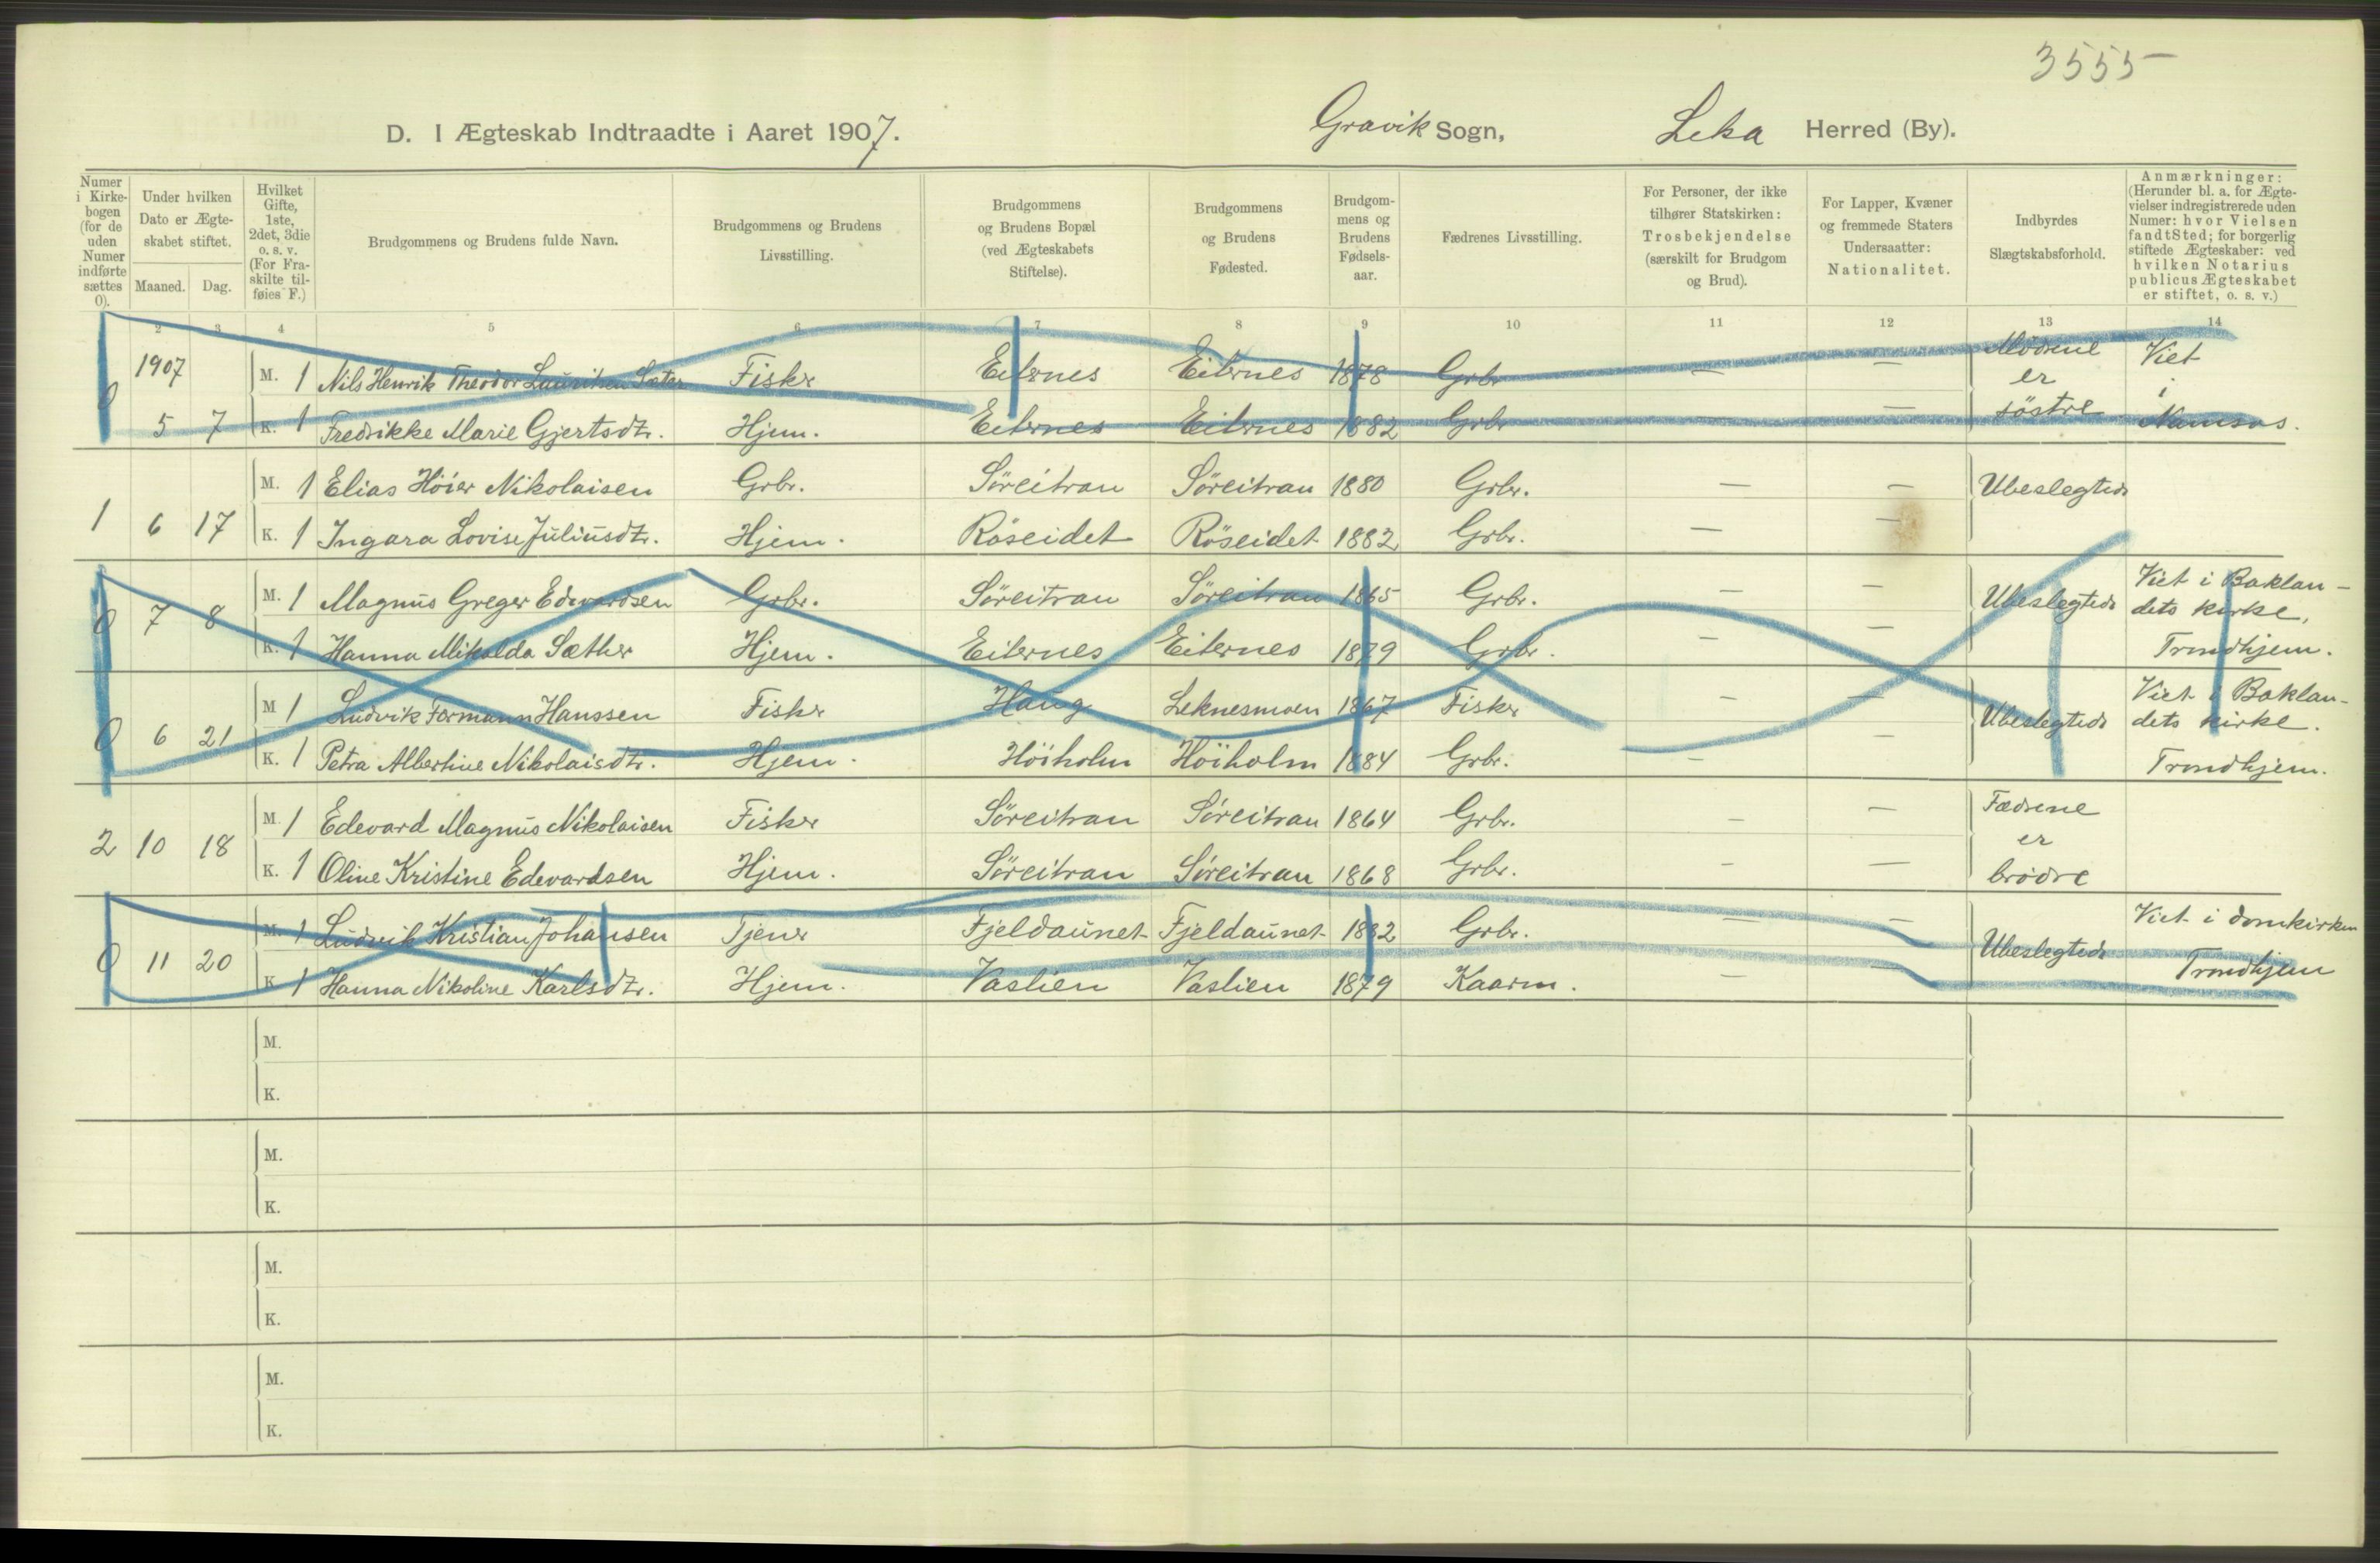 3555
D. I Ægteskab Indtraadte i Aaret 1907. Gravik Sogn, Leka Herred (By).
Numer i Kirkebogen (for de uden Numer indførte sættes 0).
Under hvilken Dato er Ægteskabet stiftet.
Maaned. Dag.
Hvilket Gifte, 1ste, 2det, 3die o. s. v. (For Fraskilte tilføies F.)
Brudgommens og Brudens fulde Navn.
Brudgommens og Brudens Livsstilling.
Brudgommens og Brudens Bopæl (ved Ægteskabets Stiftelse).
Brudgommens og Brudens Fødested.
Brudgommens og Brudens Fødselsaar.
Fædrenes Livsstilling.
For Personer, der ikke tilhører Statskirken: Trosbekjendelse (særskilt for Brudgom og Brud).
For Lapper, Kvæner og fremmede Staters Undersaatter: Nationalitet.
Indbyrdes Slægtskabsforhold.
Anmærkninger: (Herunder bl. a. for Ægtevielser indregistrerede uden Numer: hvor Vielsen fandt Sted; for borgerlig stiftede Ægteskaber: ved hvilken Notarius publicus Ægteskabet er stiftet, o. s. v.)
2 3 4 5 6 7 8 9 10 11 12 13 14
1907 M. 1 Nils Henrik Theodor Lauritsen Sæter Fisker Eiternes Eiternes 1878 Grbr — — Mödrene er söstre Viet i Namsos.
0 5 7 K. 1 Fredrikke Marie Gjertsdtr. Hjem. Eiternes Eiternes 1882 Grbr — —
M. 1 Elias Höier Nikolaisen Grbr. Søreitran Søreitran 1880 Grbr. — — Ubeslegtede
1 6 17 K. 1 Ingara Lovise Juliusdtr. Hjem. Röseidet Röseidet 1882 Grbr. — —
M. 1 Magnus Greger Edvardsen Grbr. Søreitran Søreitran 1865 Grbr. — — Ubeslegtede Viet i Baklandets kirke, Trondhjem.
0 7 8 K. 1 Hanna Mikalda Sæther Hjem. Eiternes Eiternes 1879 Grbr. — —
M 1 Ludvik Formann Hanssen Fisker Haug Leknesmoen 1867 Fisker — — Ubeslegtede Viet i Baklandets kirke. Trondhjem.
0 6 21 K. 1 Petra Albertine Nikolaisdtr. Hjem. Höiholm Höiholm 1884 Grbr. — —
M. 1 Edevard Magnus Nikolaisen Fisker Søreitran Søreitran 1864 Grbr. — — Fædrene er brödre
2 10 18 K. 1 Oline Kristine Edevardsen Hjem. Søreitran Søreitran 1868 Grbr. — —
M. 1 Ludvik Kristian Johansen Tjener Fjeldaunet Fjeldaunet 1882 Grbr. — — Ubeslegtede Viet i domkirken Trondhjem
0 11 20 K. 1 Hanna Nikoline Karlsdtr. Hjem. Vaslien Vaslien 1879 Kaarm. — —
M.
K.
M.
K.
M.
K.
M.
K.